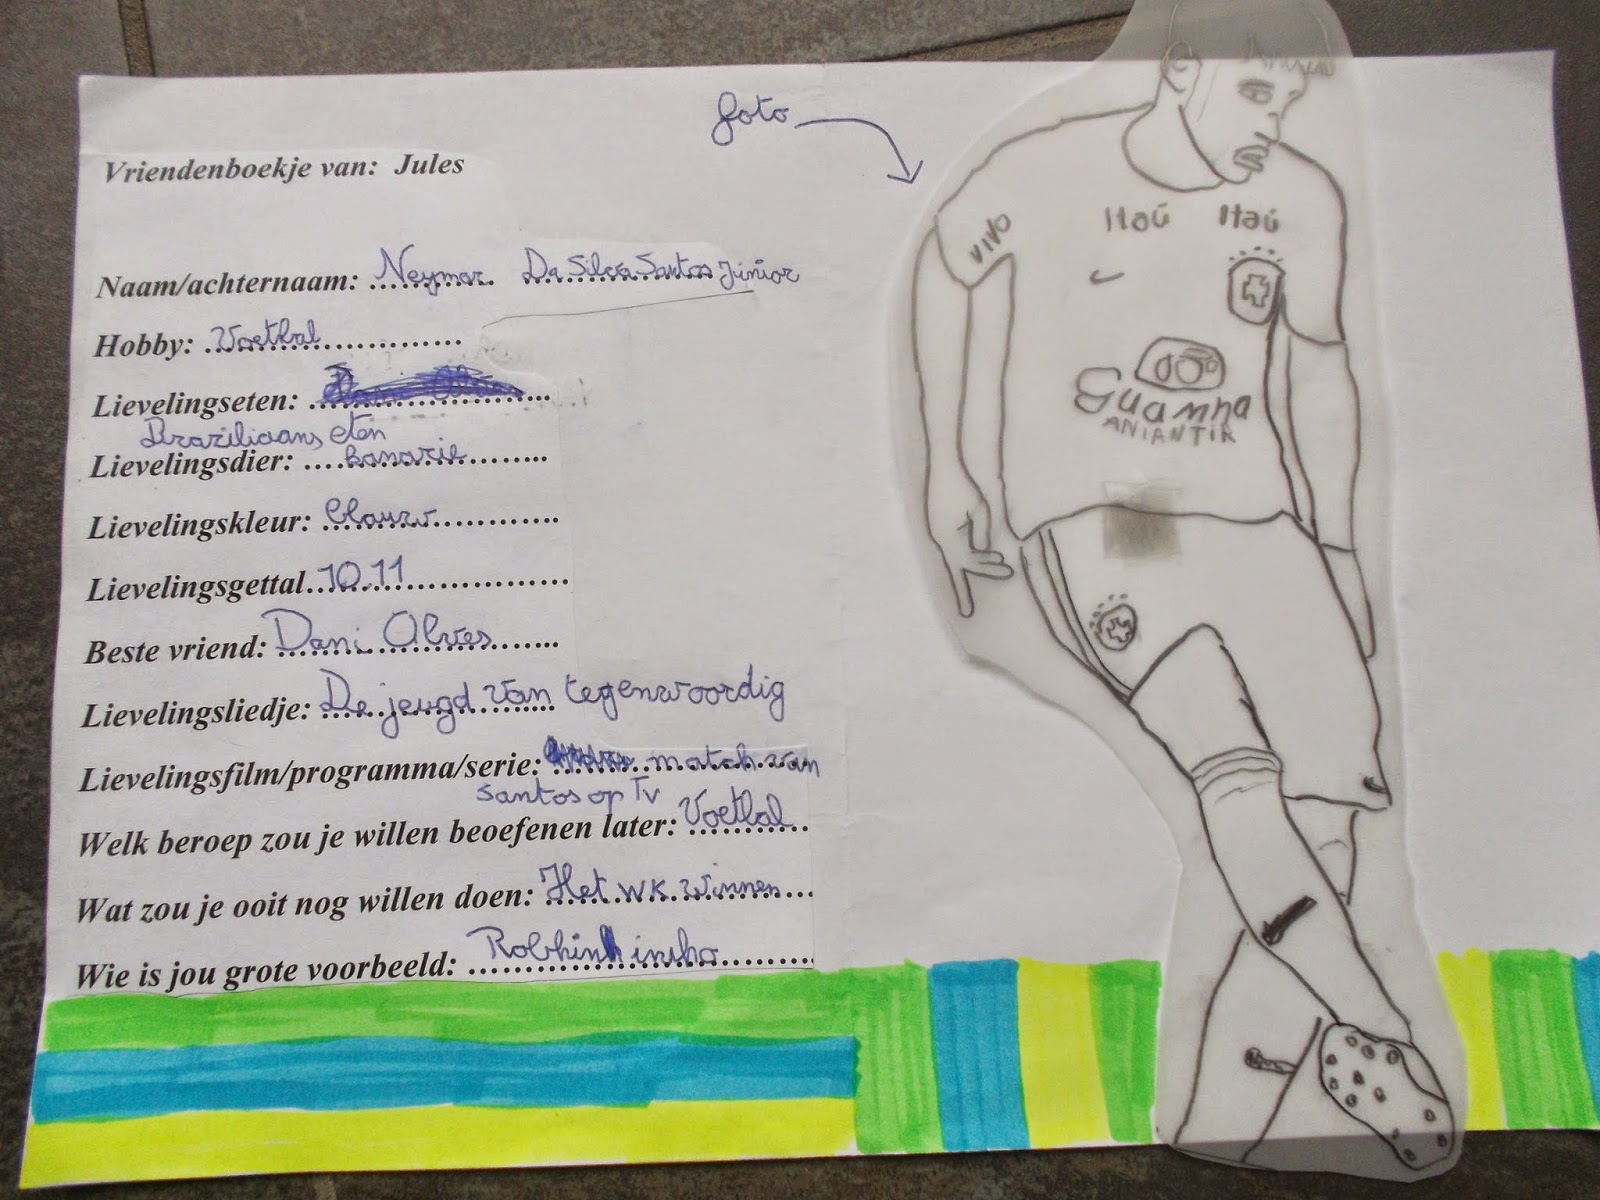 foto
Vriendenboekje van: Jules
Naam/achternaam: Neymar Da Silva Santos Júnior
Hobby: Voetbal
Lievelingseten:
Braziliaans eten
Lievelingsdier: kanarie
Lievelingskleur: blauw
Lievelingsgettal 10.11
Beste vriend: Dani Alves
Lievelingsliedje: De jeugd van tegenwoordig
Lievelingsfilm/programma/serie: match van
santos op Tv
Welk beroep zou je willen beoefenen later: Voetbal
Wat zou je ooit nog willen doen: Het WK winnen
Wie is jou grote voorbeeld:
VIVO
Itaú Itaú
Guamna
ANIANTIR